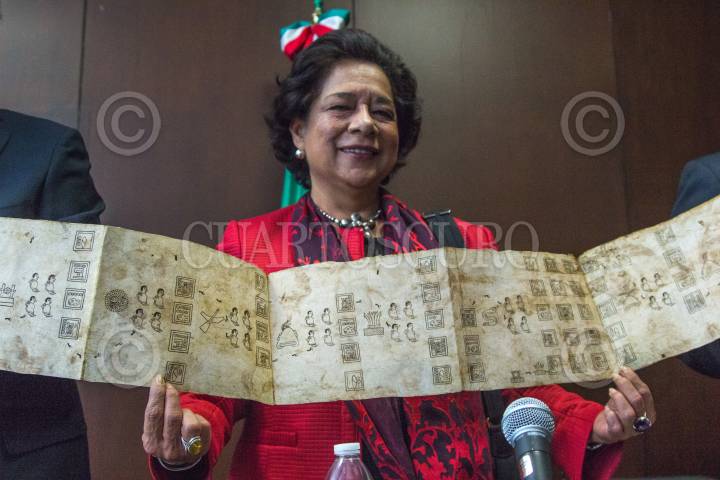 ©
©
CUARTOSCURO
©
©